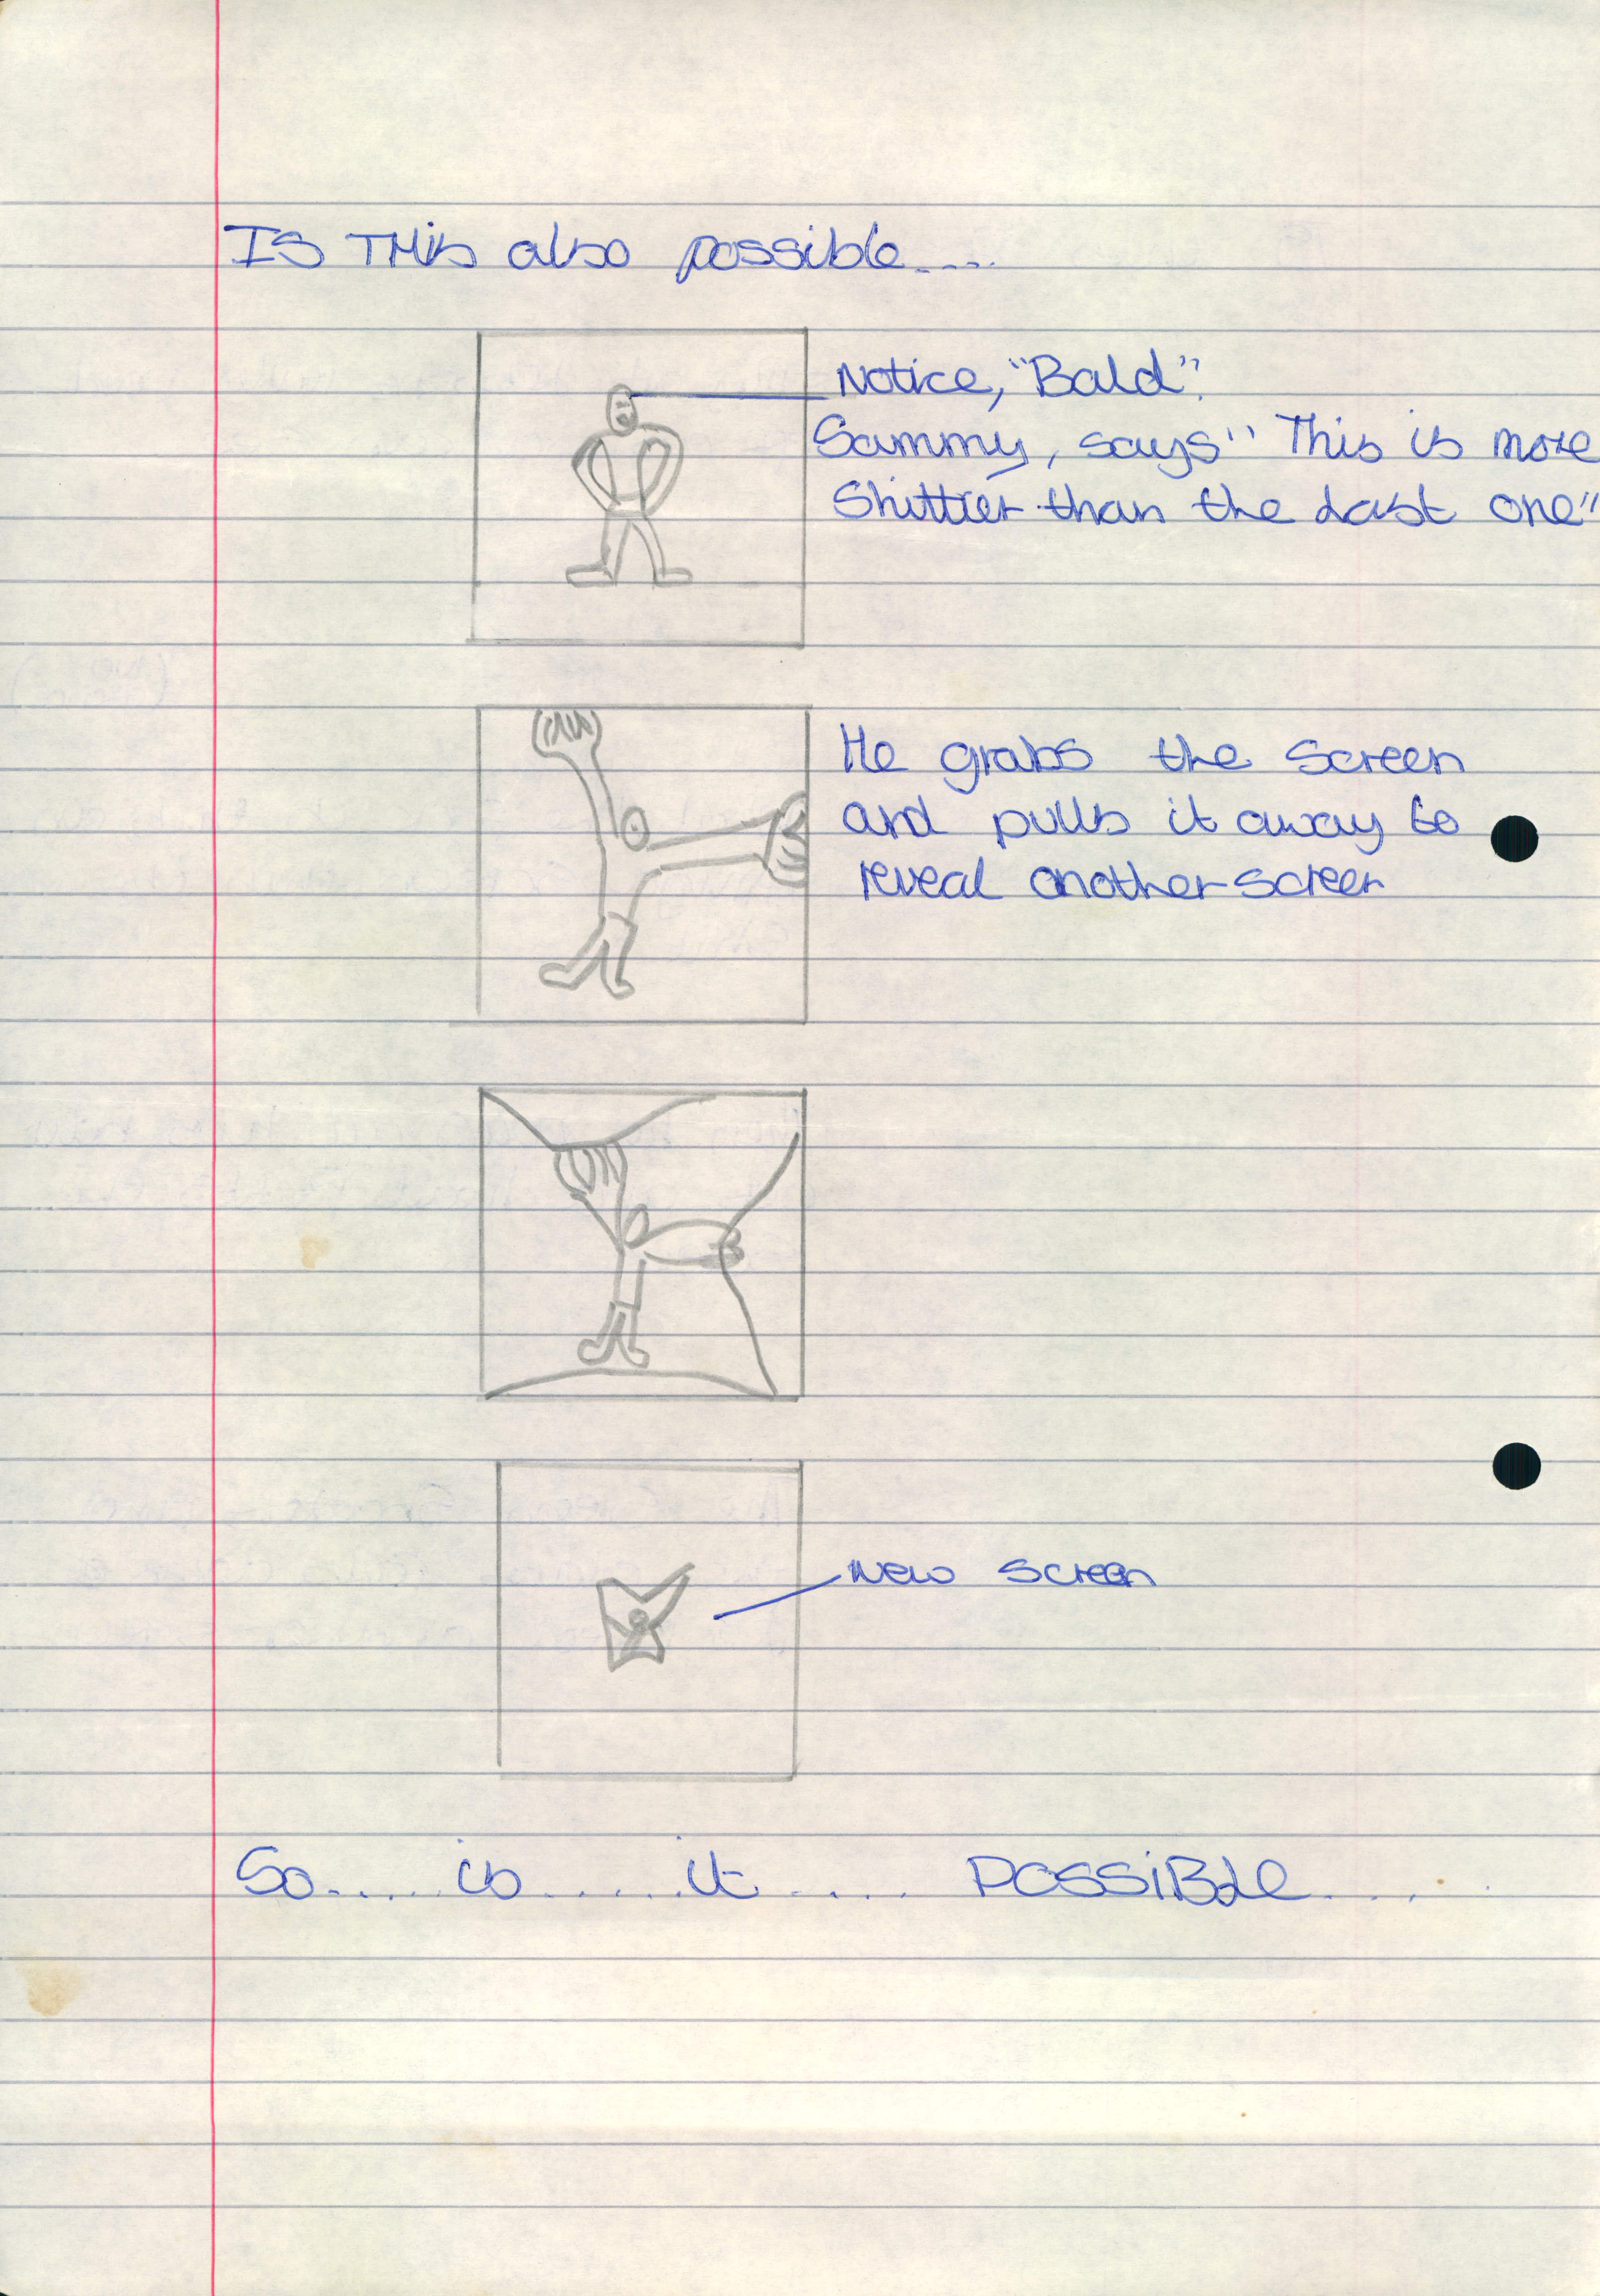 IS THis also possible....
Notice, "Bald".
Sammy, says" This is more
Shittier than the Last one"
He grabs the Screen
and pulls it away to
reveal another screen
New Screen
So..... is ...... it ..... POSSiBLe.....